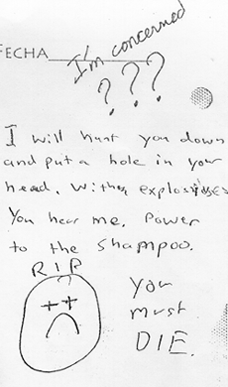 I'm concerned
FECHA
???
I will hunt you down
and put a hole in your
head. With explosives
You hear me. Power
to the Shampoo.
RIP
You
must
DIE.